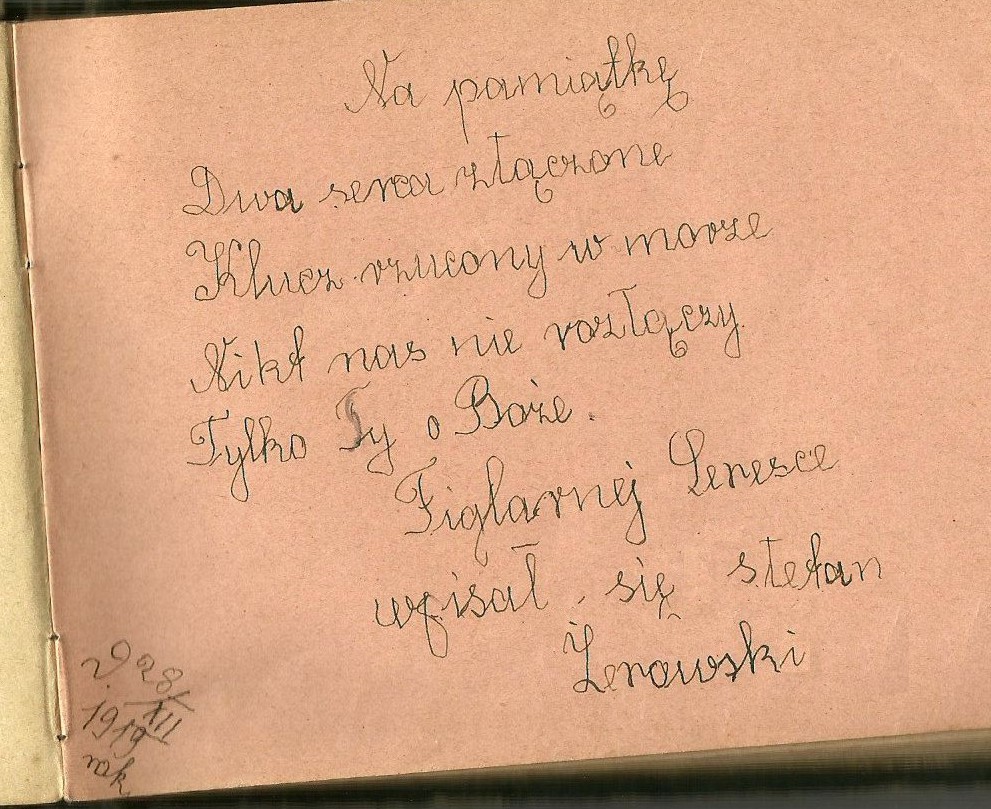 Na pamiątkę
Dwa serca złączone
Klucz rzucony w morze
Nikt nas nie rozłączy.
Tylko Ty o Boże.
Figlarnej
wpisał się stefan
Żerowski
d. 28/XII
1919
rok